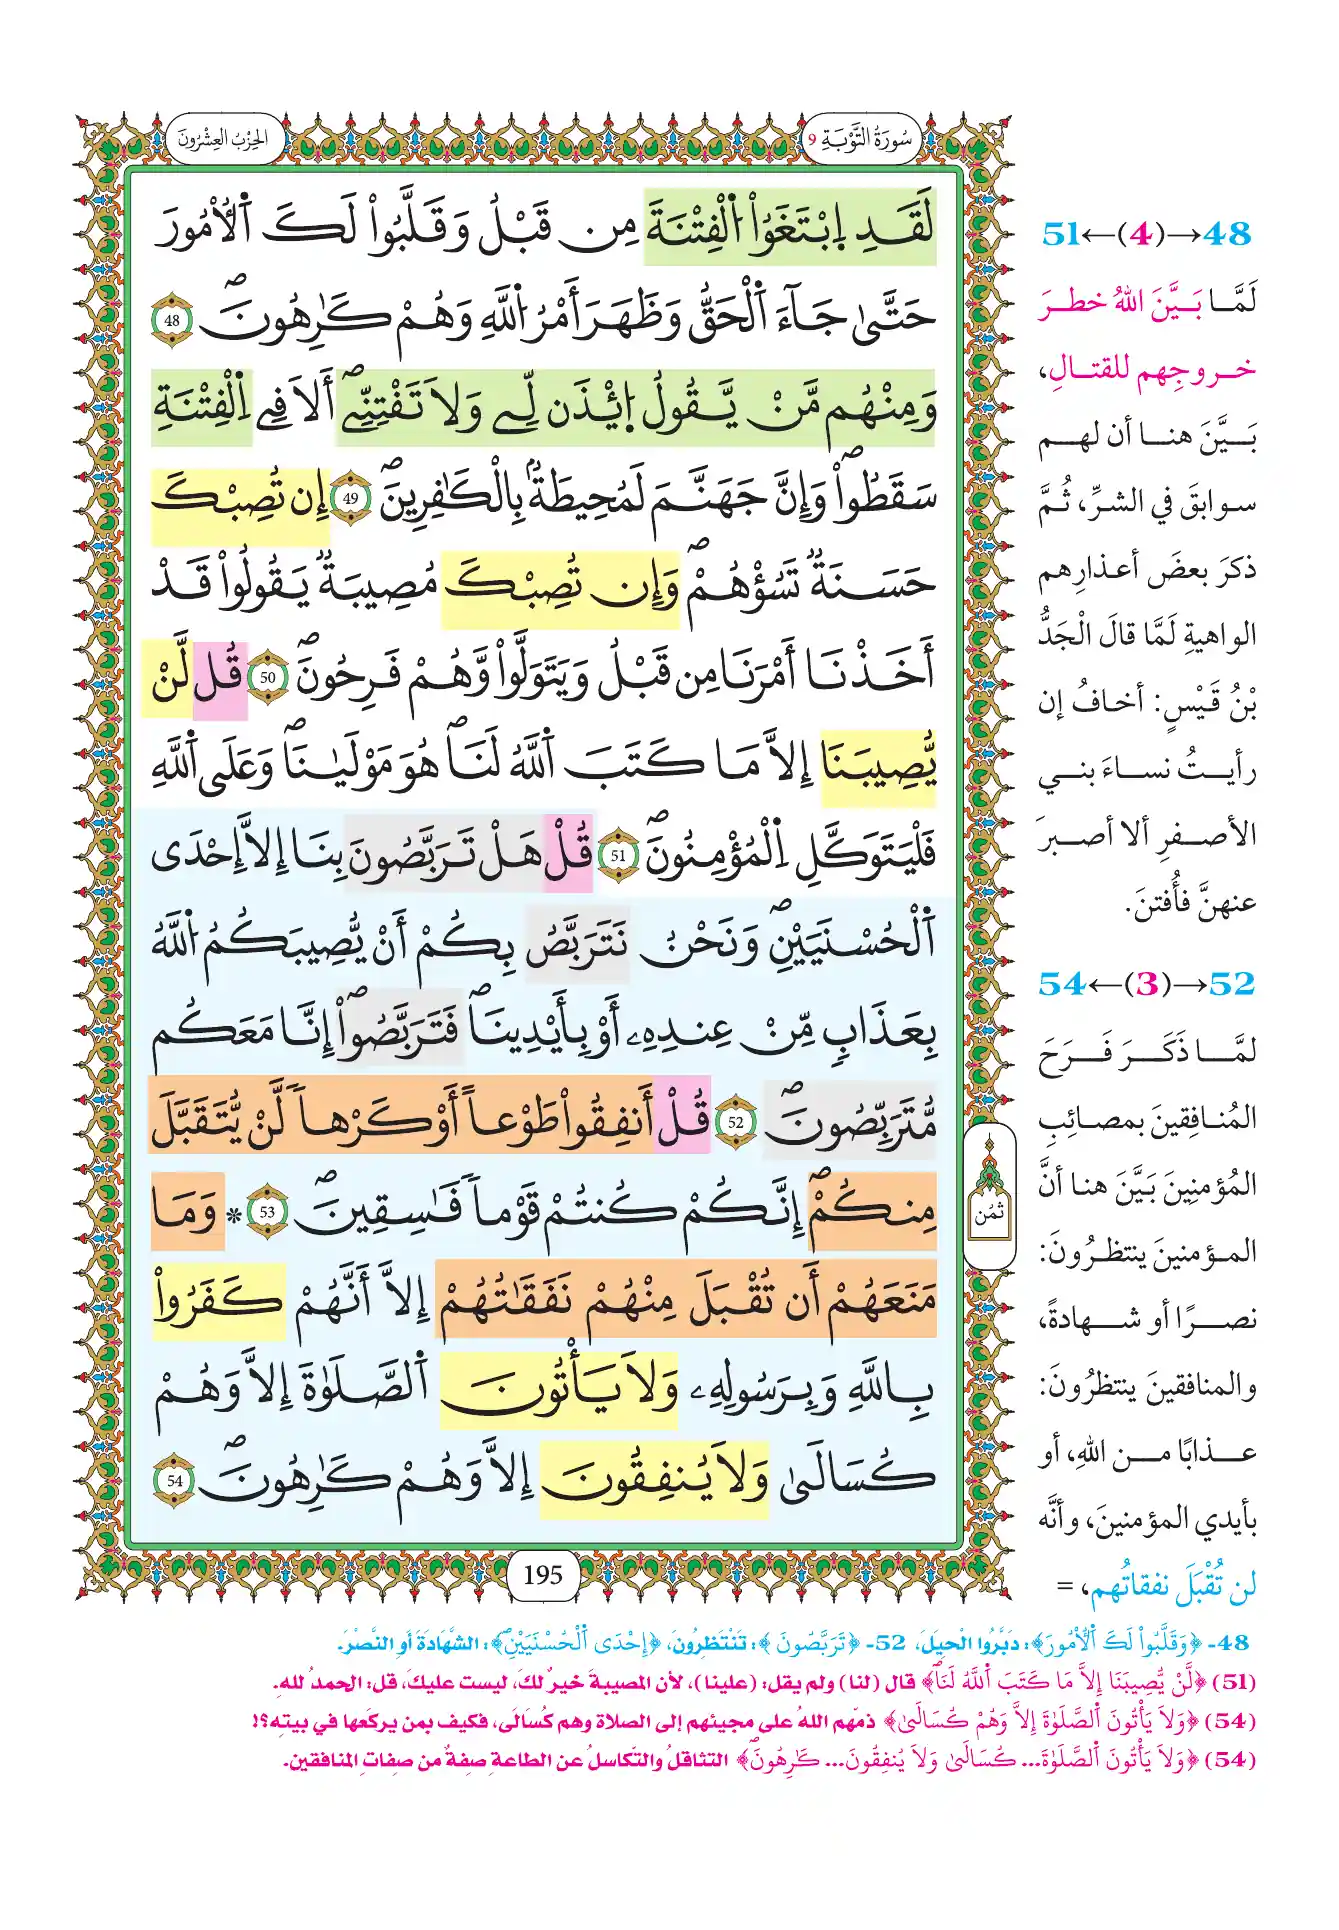 سُورَةُ التَّوْبَةِ 9
الحِزْبُ العِشْرُونَ
لَقَدِ اِ۪بْتَغَوُاْ اُ۬لْفِتْنَةَ مِن قَبْلُ وَقَلَّبُواْ لَكَ اَ۬لُامُورَ
حَتَّىٰ جَآءَ اَ۬لْحَقُّ وَظَهَرَ أَمْرُ اُ۬للَّهِ وَهُمْ كَٰرِهُونَۖ 48
وَمِنْهُم مَّنْ يَّقُولُ اُ۪ئْذَن لِّے وَلَا تَفْتِنِّےۖ أَلَا فِے اِ۬لْفِتْنَةِ
سَقَطُواْۖ وَإِنَّ جَهَنَّمَ لَمُحِيطَةُۢ بِالْكَٰفِرِينَۖ 49 إِن تُصِبْكَ
حَسَنَةٌ تَسُؤْهُمْۖ وَإِن تُصِبْكَ مُصِيبَةٌ يَقُولُواْ قَدَ
اَخَذْنَا أَمْرَنَا مِن قَبْلُ وَيَتَوَلَّواْ وَّهُمْ فَرِحُونَۖ 50 قُل لَّنْ
يُّصِيبَنَا إِلَّا مَا كَتَبَ اَ۬للَّهُ لَنَاۖ هُوَ مَوْلَيٰنَاۖ وَعَلَى اَ۬للَّهِ
فَلْيَتَوَكَّلِ اِ۬لْمُؤْمِنُونَۖ 51 قُلْ هَلْ تَرَبَّصُونَ بِنَا إِلَّا إِحْدَى
اَ۬لْحُسْنَيَيْنِۖ وَنَحْنُ نَتَرَبَّصُ بِكُمْ أَنْ يُّصِيبَكُمُ اُ۬للَّهُ
بِعَذَابٍ مِّنْ عِندِهِۦ أَوْ بِأَيْدِينَاۖ فَتَرَبَّصُواْۖ إِنَّا مَعَكُم
مُّتَرَبِّصُونَۖ 52 قُلْ أَنفِقُواْ طَوْعاً أَوْ كَرْهاً لَّنْ يُّتَقَبَّلَ
مِنكُمْۖ إِنَّكُمْ كُنتُمْ قَوْماً فَٰسِقِينَۖ 53 * وَمَا
مَنَعَهُمْ أَن تُقْبَلَ مِنْهُمْ نَفَقَٰتُهُمْ إِلَّا أَنَّهُمْ كَفَرُواْ
بِاللَّهِ وَبِرَسُولِهِۦ وَلَا يَأْتُونَ اَ۬لصَّلَوٰةَ إِلَّا وَهُمْ
كُسَالَىٰ وَلَا يُنفِقُونَ إِلَّا وَهُمْ كَٰرِهُونَۖ 54
ثمُن
195
48→(4)←51
لَمَّا بَيَّنَ اللهُ خطرَ
خروجِهم للقتالِ،
بَيَّنَ هنا أن لهم
سوابقَ في الشرِّ، ثُمَّ
ذكرَ بعضَ أعذارِهم
الواهيةِ لَمَّا قالَ الْجَدُّ
بْنُ قَيْسٍ: أخافُ إن
رأيتُ نساءَ بني
الأصفرِ ألا أصبرَ
عنهنَّ فأُفتنَ.
52→(3)←54
لمَّا ذَكَرَ فَرَحَ
المُنافِقينَ بمصائِبِ
المُؤمنِينَ بَيَّنَ هنا أنَّ
المؤمنينَ ينتظرُونَ:
نصرًا أو شهادةً،
والمنافقينَ ينتظرُونَ:
عذابًا من اللهِ، أو
بأيدي المؤمنينَ، وأنَّه
لن تُقْبَلَ نفقاتُهم، =
48- ﴿وَقَلَّبُواْ لَكَ اَ۬لُامُورَ﴾: دَبَّرُوا الْحِيَلَ، 52- ﴿تَرَبَّصُونَ﴾: تَنْتَظِرُونَ، ﴿إِحْدَى اَ۬لْحُسْنَيَيْنِۖ﴾: الشَّهَادَةَ أَوِ النَّصْرَ.
(51) ﴿لَّنْ يُّصِيبَنَا إِلَّا مَا كَتَبَ اَ۬للَّهُ لَنَاۖ﴾ قال (لنا) ولم يقل: (علينا)، لأن المصيبةَ خيرٌ لكَ، ليست عليكَ، قل: الحمدُ للهِ.
(54) ﴿وَلَا يَأْتُونَ اَ۬لصَّلَوٰةَ إِلَّا وَهُمْ كُسَالَىٰ﴾ ذمّهم اللهُ على مجيئهم إلى الصلاة وهم كُسَالَى، فكيف بمن يركَعها في بيتِه؟!
(54) ﴿وَلَا يَأْتُونَ اَ۬لصَّلَوٰةَ... كُسَالَىٰ وَلَا يُنفِقُونَ... كَٰرِهُونَۖ﴾ التثاقلُ والتّكاسلُ عن الطاعةِ صِفةٌ من صِفاتِ المنافقين.